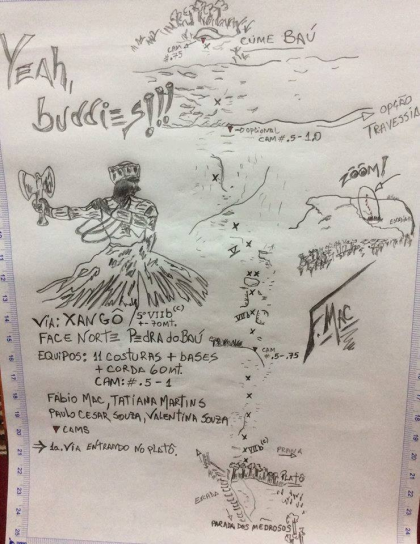 CUME BAÚ
CAM
#.75
YEAH,
buddies!!!
OPÇÃO
TRAVESSIA
OPCIONAL
CAM #.5-1.0
ZÖÖM!
VIA: XANGÔ / 5º VIIb (c)
+- 70MT.
FACE NORTE PEDRA DO BAÚ
EQUIPOS: 11 COSTURAS + BASES
+ CORDA 60 MT.
CAM: #.5 - 1
F. MAC
CAM
#.5-.75
FÁBIO MAC, TATIANA MARTINS
PAULO CESAR SOUZA, VALENTINA SOUZA
CAMS
→ 1a. VIA ENTRANDO NO PLATÔ.
VIIb (c)
PLATÔ
PARADA DOS MEDROSOS